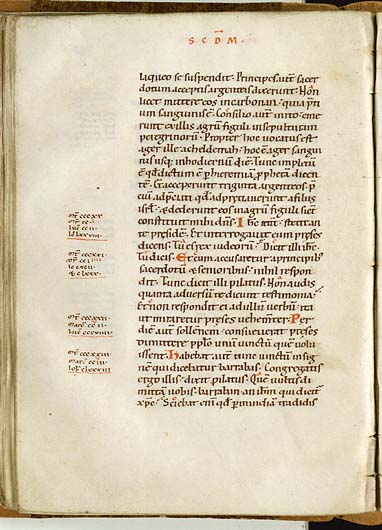 SCDM
laqueo se suspendit. Principes aūt sacer
dotum acceptis argenteis dixerunt. Non
licet mittere eos in carbonan. quia p̄tiu
sanguinis ē. Consilio aūt inito. eme
runt ex illis agrū figuli in sepulturam
peregrinorū. Propter hoc uocatus est
ager ille acheldemah. hoc ē ager sangui
nis usq; in hodiernū diē. Tunc impletū
ē qd dictum ē p hieremiā pphetā dicen
tē. Et acceperunt triginta argenteos p̄
ciū adp̄ciati quē adp̄ciauerunt a filiis
isrl. & dederunt eos in agrū figuli sicut
constituit mihi dn̄s. Ihc aūt stetit an
te presidē. Et interrogauit eum preses
dicens. Tu es rex iudeorū. Dicit illi ihc.
Tu dicis. Et cum accusaretur a principib;
sacerdotū & senioribus. nihil respon
dit. Tunc dicit illi pilatus. Non audis
quanta aduersū te dicunt testimonia.
Et non respondit ei ad ullū uerbū. ita
ut miraretur preses uehementer. Per
diē aūt sollēnem consueuerat preses
dimittere pplo unū uinctū quē uolu
issent. Habebat aūt tunc uinctū insig
nē qui dicebatur barrabas. Congregatis
ergo illis dixit pilatus. Quē uultis di
mittā uobis. barraban an ihm qui dicit
xpc. Sciebat eni qd p inuidiā tradidis